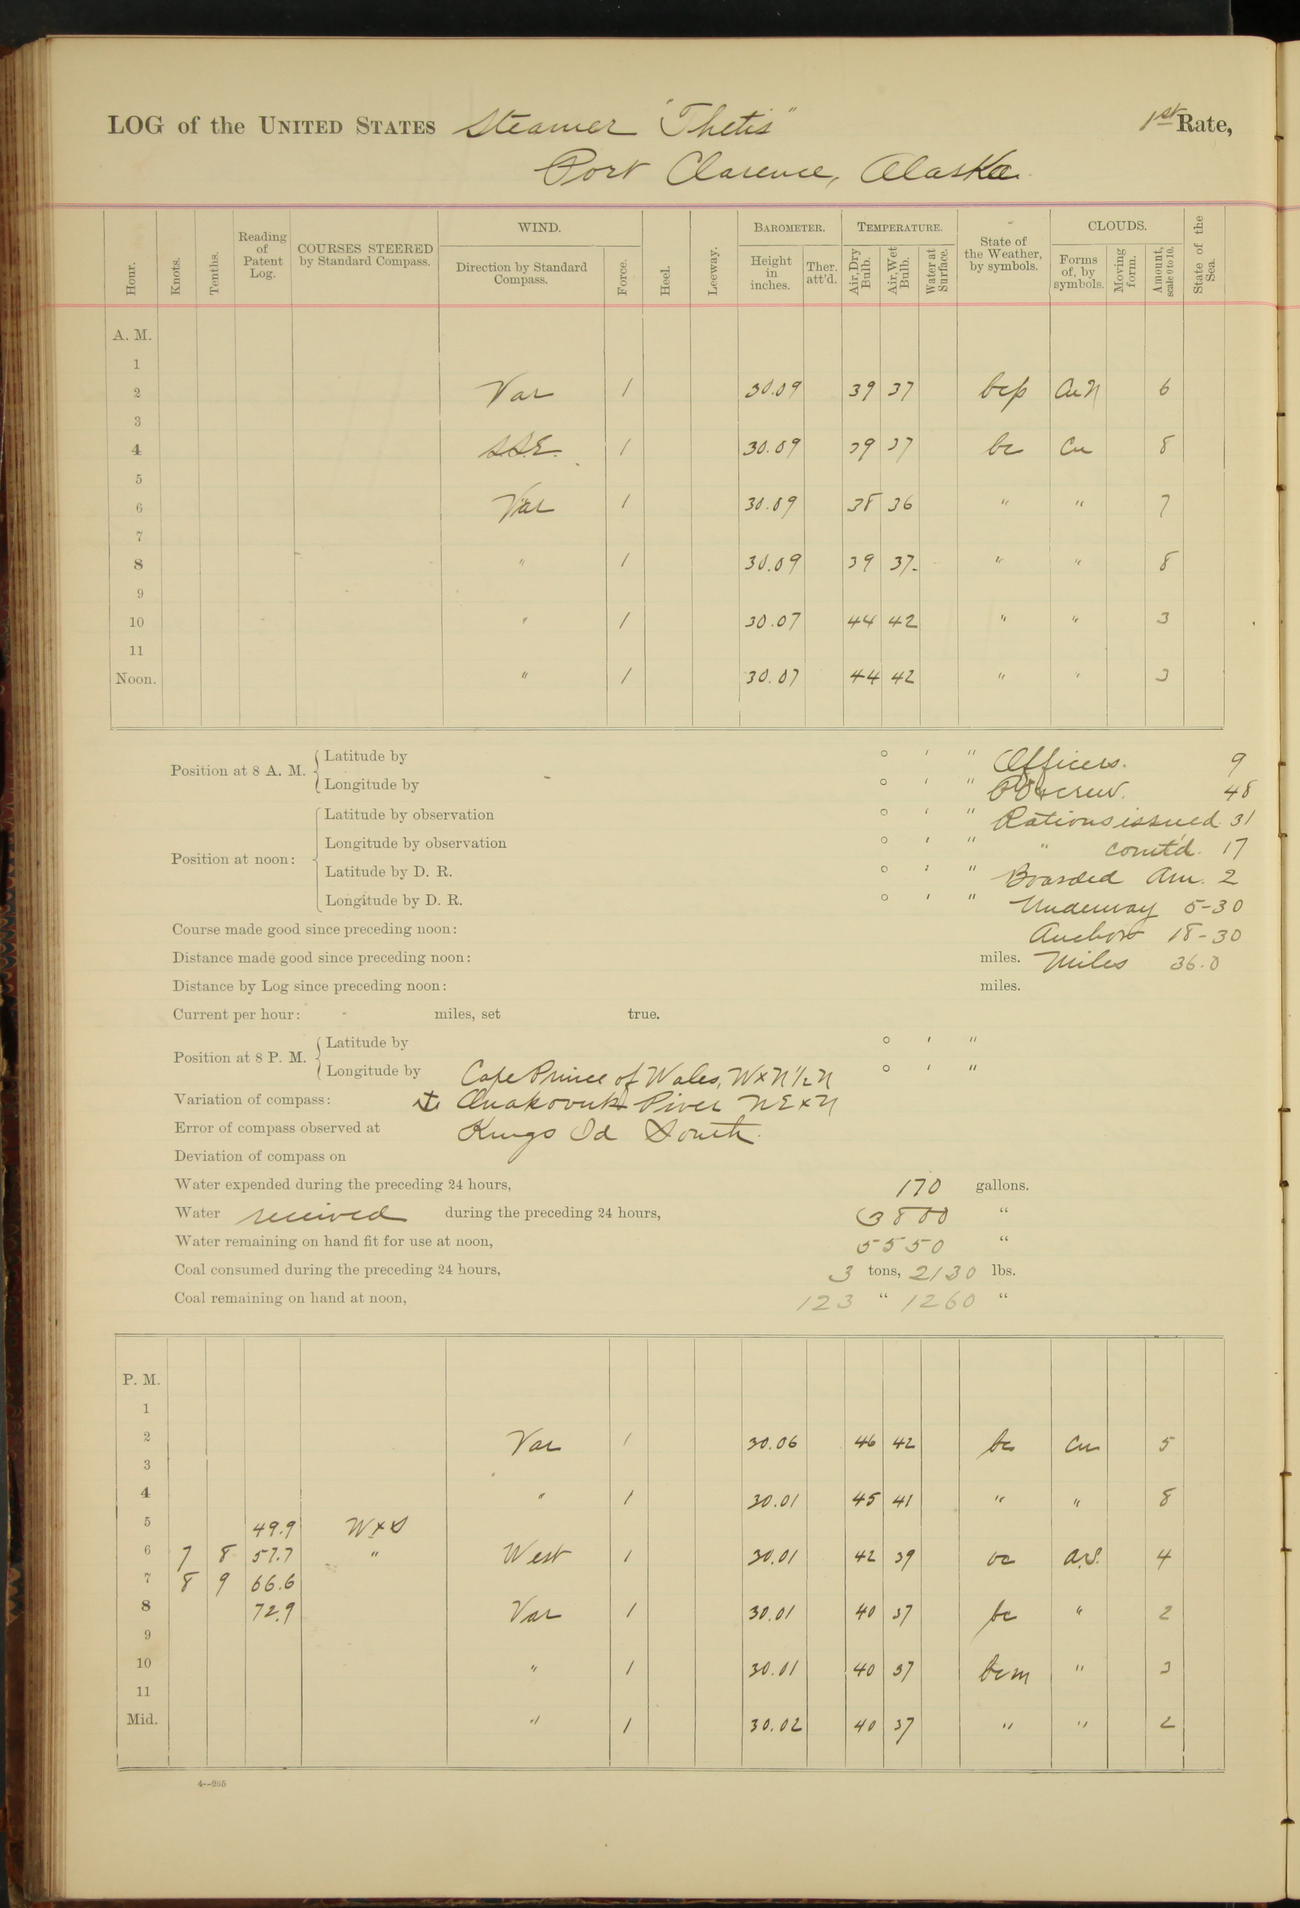 LOG of the UNITED STATES Steamer "Thetis" 1st Rate,
Port Clarence, Alaska.
Hour. Knots. Tenths. Reading of Patent Log. COURSES STEERED by Standard Compass. WIND. Direction by Standard Compass. Force. Heel. Leeway. BAROMETER. Height in inches. Ther. att'd. TEMPERATURE. Air, Dry Bulb. Air, Wet Bulb. Water at Surface. State of the Weather, by symbols. CLOUDS. Forms of, by symbols. Moving form. Amount, scale 0 to 10. State of the Sea.
A. M.
1
2 Var 1 30.09 39 37 bcp Cu N 6
3
4 SSE. 1 30.09 39 37 bc Cu 8
5
6 Var 1 30.09 38 36 " " 7
7
8 " 1 30.09 39 37. " " 8
9
10 " 1 30.07 44 42 " " 3
11
Noon. " 1 30.07 44 42 " " 3
Position at 8 A. M. Latitude by ° ' " Officers. 9
Longitude by ° ' " crew. 48
Position at noon: Latitude by observation ° ' " Rations issued 31
Longitude by observation ° ' " " com'td. 17
Latitude by D. R. ° ' " Boarded Am. 2
Longitude by D. R. ° ' " Underway 5-30
Course made good since preceding noon: Anchor 18-30
Distance made good since preceding noon: miles. Miles 36.0
Distance by Log since preceding noon: miles.
Current per hour: miles, set true.
Position at 8 P. M. Latitude by ° ' "
Longitude by Cape Prince of Wales, WxN½N ° ' "
Variation of compass: ⚓ Anakovuk River NExN
Error of compass observed at Kings Id South.
Deviation of compass on
Water expended during the preceding 24 hours, 170 gallons.
Water received during the preceding 24 hours, 3800 "
Water remaining on hand fit for use at noon, 5550 "
Coal consumed during the preceding 24 hours, 3 tons, 2130 lbs.
Coal remaining on hand at noon, 123 " 1260 "
P. M.
1
2 Var 1 30.06 46 42 bc Cu 5
3
4 " 1 30.01 45 41 " " 8
5 49.9 WxS
6 7 8 57.7 " West 1 30.01 42 39 oc a.S. 4
7 8 9 66.6
8 72.9 Var 1 30.01 40 37 bc " 2
9
10 " 1 30.01 40 37 bcm " 3
11
Mid. " 1 30.02 40 37 " " 2
4—265